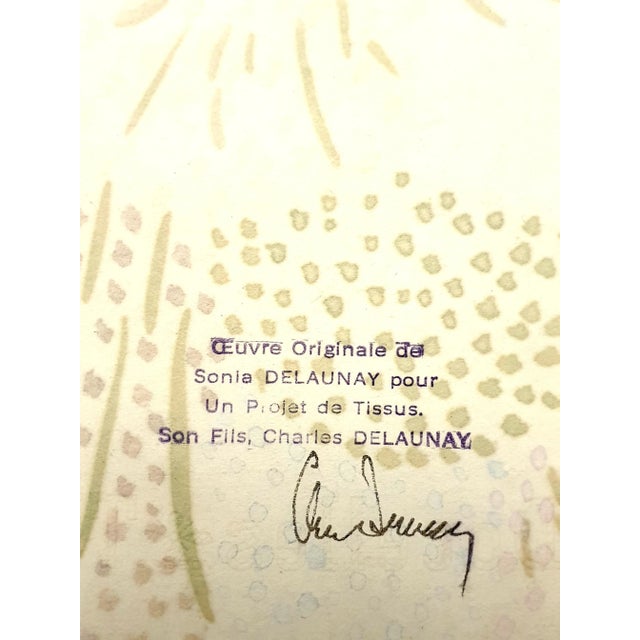 Œuvre Originale de
Sonia DELAUNAY pour
Un Projet de Tissus.
Son Fils, Charles DELAUNAY